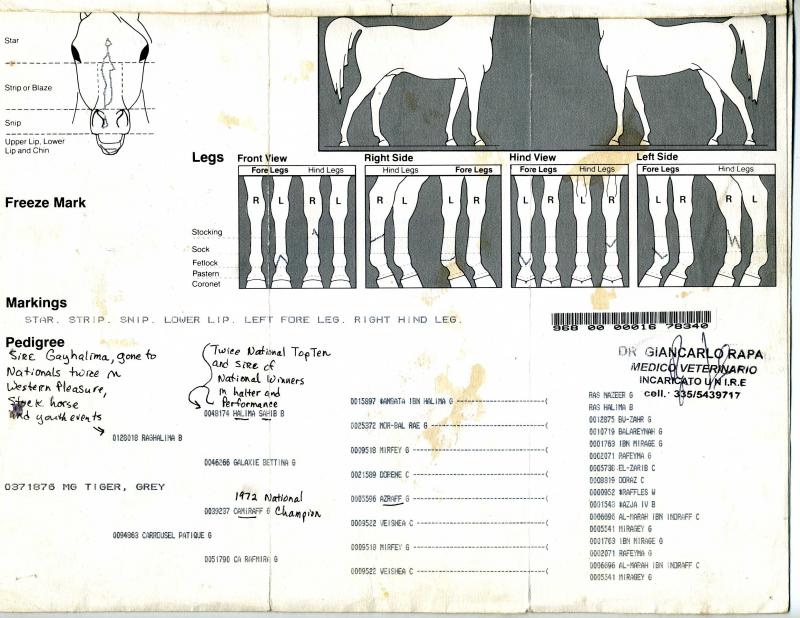 Star
Strip or Blaze
Snip
Upper Lip, Lower
Lip and Chin
Legs
Front View
Right Side
Hind View
Left Side
Fore Legs
Hind Legs
Hind Legs
Fore Legs
Fore Legs
Hind Legs
Fore Legs
Hind Legs
R L R L
R L L R
L R L R
L R R L
Freeze Mark
Stocking
Sock
Fetlock
Pastern
Coronet
Markings
STAR. STRIP. SNIP. LOWER LIP. LEFT FORE LEG. RIGHT HIND LEG.
968 00 00016 78340
Pedigree
Sire Gayhalima, gone to
Nationals twice in
Western Pleasure,
Stock horse
and youth events
Twice National Top Ten
and Sire of
National Winners
in halter and
Performance
DR GIANCARLO RAPA
MEDICO VETERINARIO
INCARICATO U N I R E
cell. 335/5439717
0371876 MG TIGER, GREY
0128018 RAGHALIMA B
0094963 CARROUSEL PATIQUE G
0048174 HALIMA SAHIB B
0046266 GALAXIE BETTINA G
1972 National
Champion
0039237 CAMIRAFF G
0051790 CA RAFMIRA G
0015897 *AMSATA IBN HALIMA G
0025372 MOR-BAL RAE G
0009518 MIRFEY G
0021589 DORENE C
0005596 AZRAFF G
0009522 VEISHEA C
0009518 MIRFEY G
0009522 VEISHEA C
RAS NAZEER G
RAS HALIMA B
0012875 BU-ZAHR G
0010719 BALAREYNAH G
0001763 IBN MIRAGE G
0002071 RAFEYMA G
0005736 EL-ZARIB C
0008819 DORAZ C
0000952 *RAFFLES W
0001543 *AZJA IV B
0006696 AL-MARAH IBN INDRAFF C
0005541 MIRAGEY G
0001763 IBN MIRAGE G
0002071 RAFEYMA G
0006696 AL-MARAH IBN INDRAFF C
0005541 MIRAGEY G